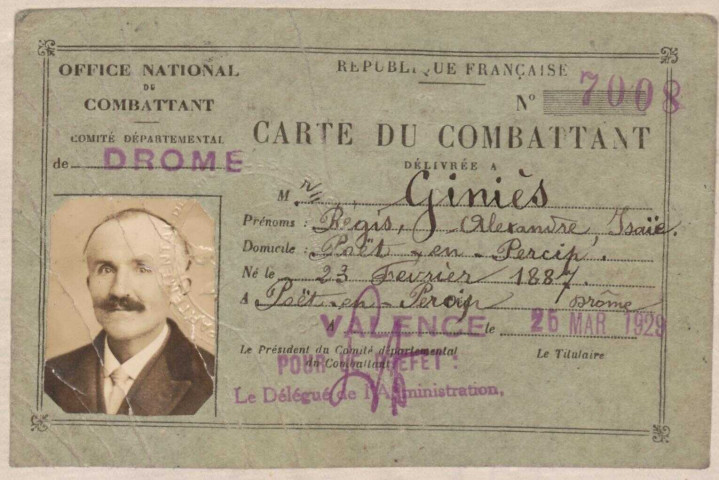 OFFICE NATIONAL
DU
COMBATTANT
COMITÉ DÉPARTEMENTAL
de DROME
RÉPUBLIQUE FRANÇAISE
N° 7008
CARTE DU COMBATTANT
DÉLIVRÉE A
M. Giniès
Prénoms : Régis, Alexandre, Isaïe.
Domicile : Poët-en-Percip.
Né le 23 Février 1887.
A Poët-en-Percip Drôme
A VALENCE le 25 MAR 1929
Le Président du Comité départemental
du Combattant
Le Titulaire
POUR LE PRÉFET :
Le Délégué de l'Administration.